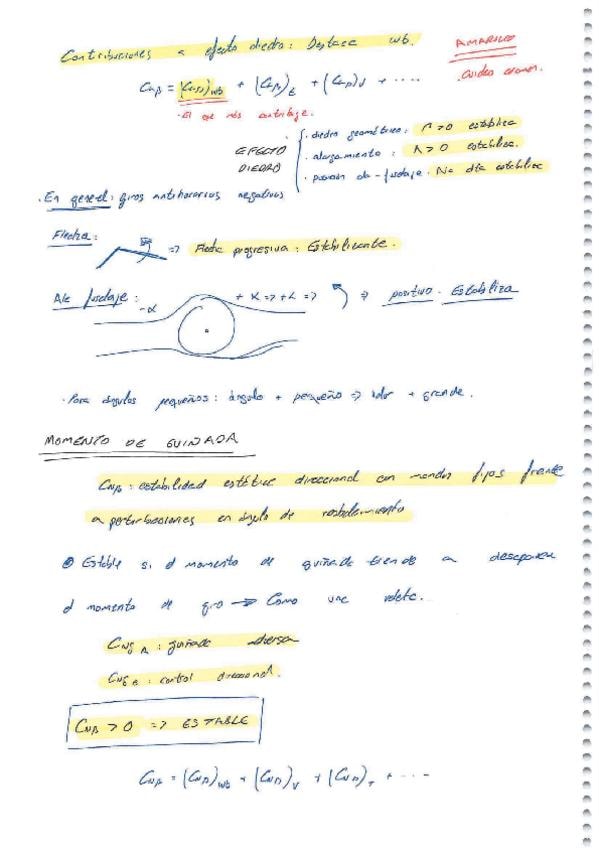 Contribuciones a efecto diedro: Destaca wb.
AMARILLO
Cuidado examen.
Cnβ = (Cnβ)wb + (Cnβ)t + (Cnβ)v + ....
· El que más contribuye.
EFECTO DIEDRO
· diedro geométrico: Γ > 0 estabiliza
· alargamiento: Λ > 0 estabiliza.
· posición ala-fuselaje. No día estabiliza
· En general: giros antihorarios negativos
Flecha:
=> Flecha progresiva: Estabilizante.
Ala fuselaje:
-α
+ α => + L => => positivo. Estabiliza
· Para ángulos pequeños: ángulo + pequeño => valor + grande.
MOMENTO DE GUIÑADA
Cnβ: estabilidad estática direccional con mandos fijos frente
a perturbaciones en ángulo de resbalamiento
Estable si el momento de guiñada tiende a desaparecer
el momento de giro → Como una veleta.
CnδA: guiñada adversa
Cnδe: control direccional.
Cnβ > 0 => ESTABLE
Cnβ = (Cnβ)wb + (Cnβ)v + (Cnβ)t + ....